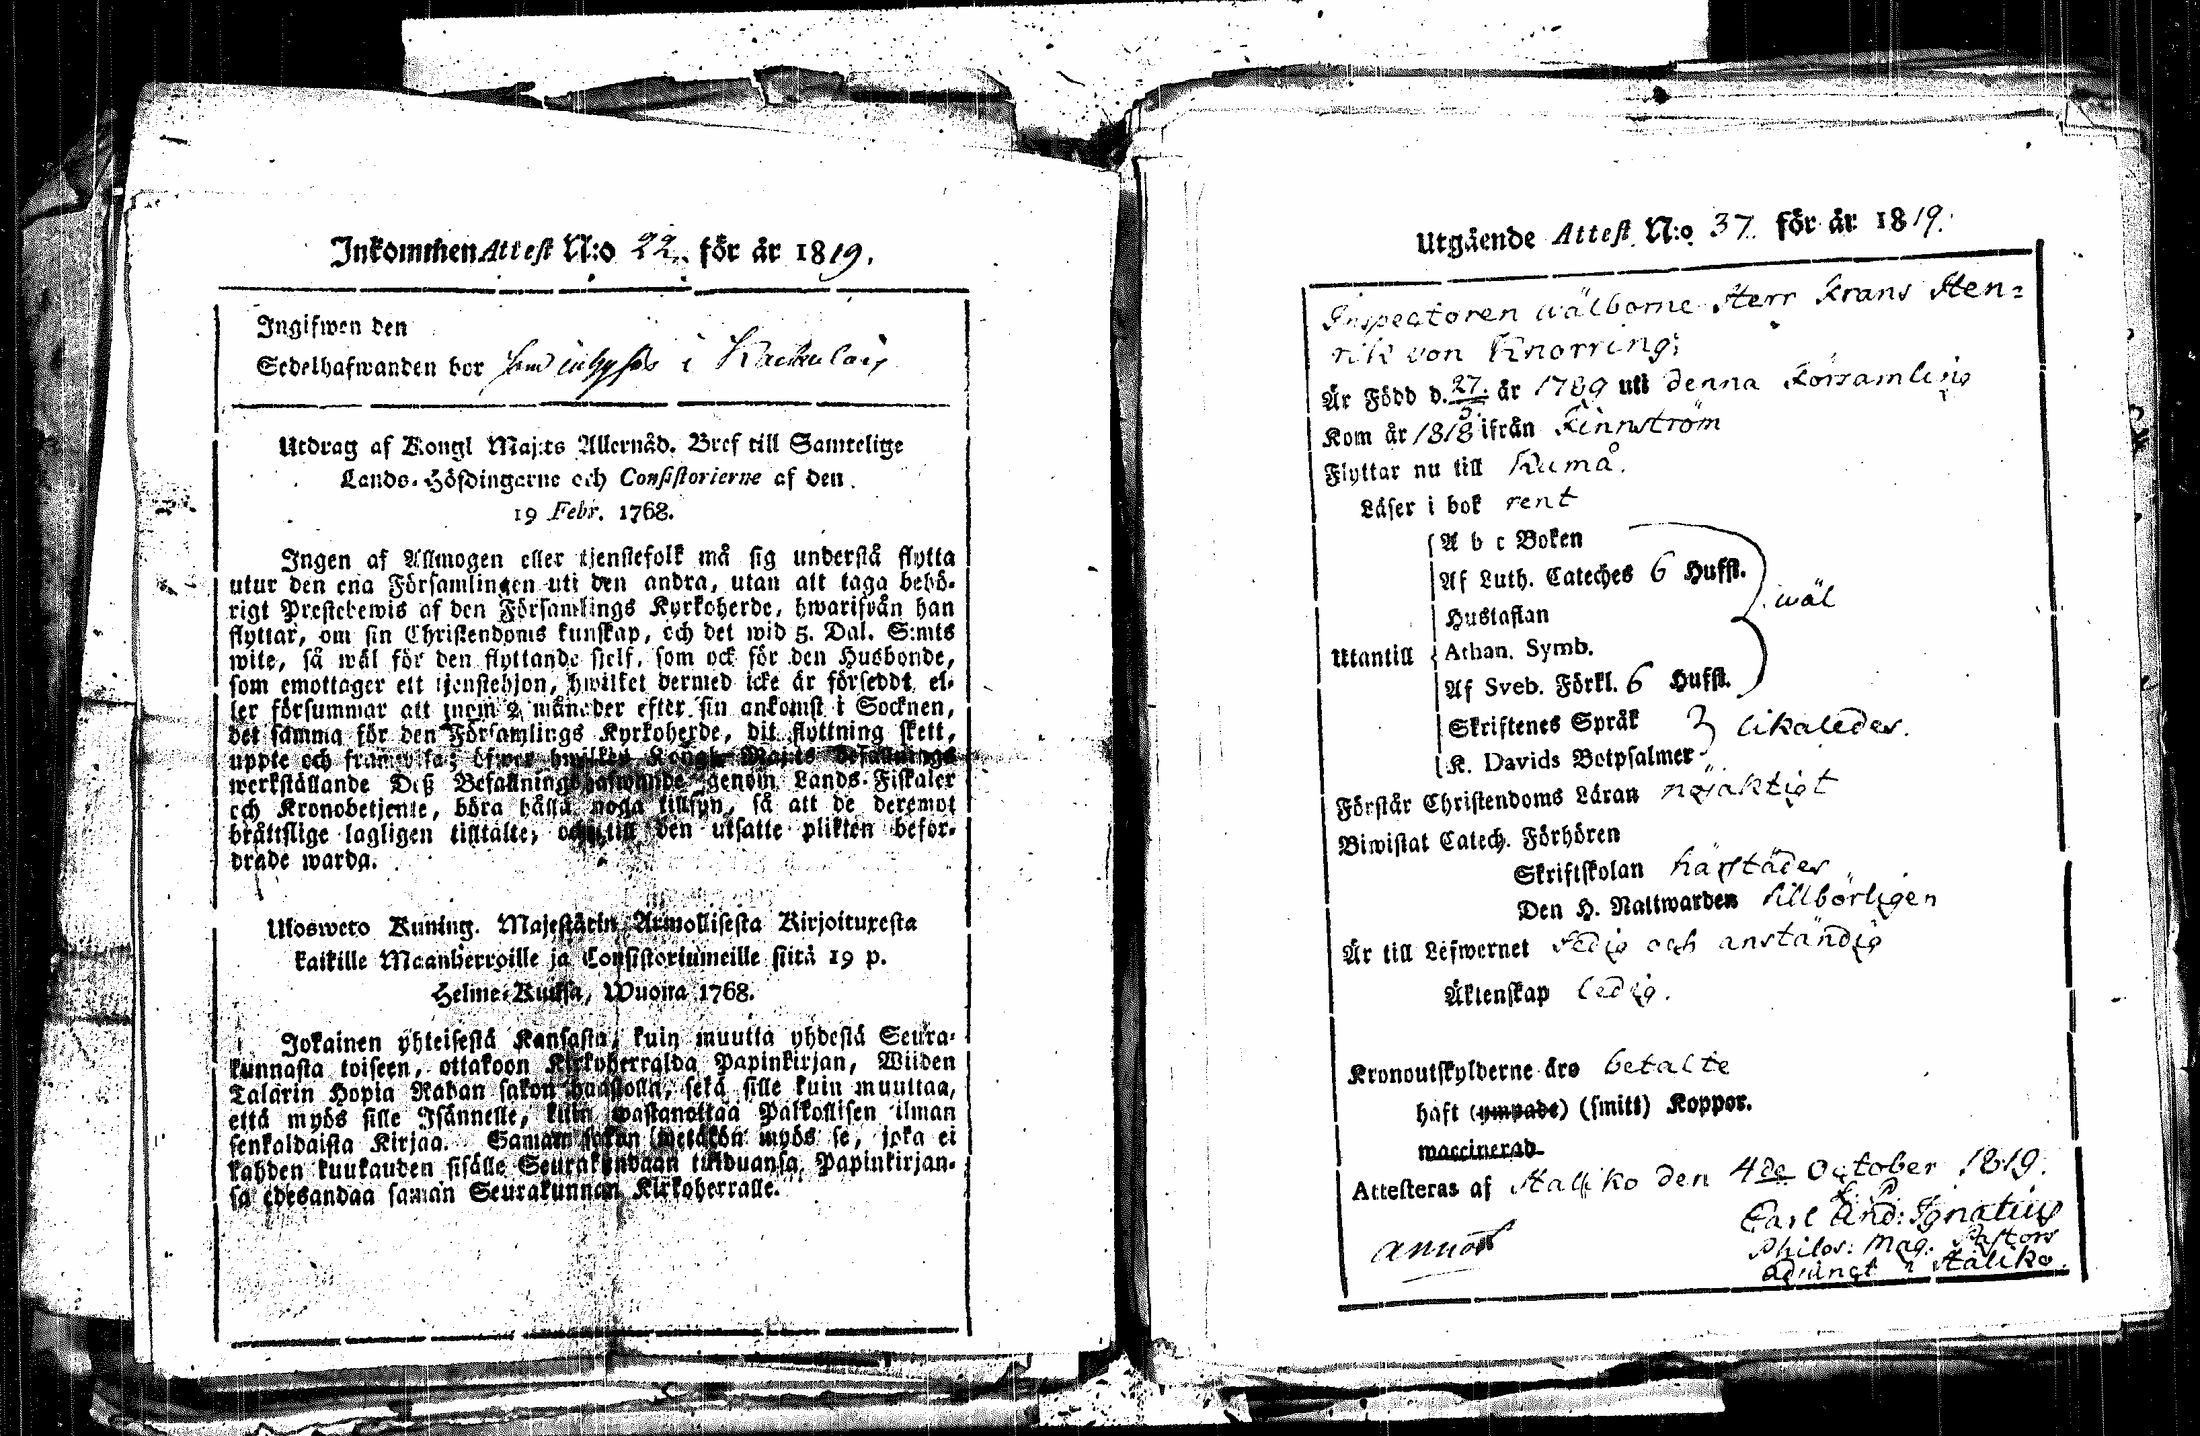 Inkommen Attest N:o 22. för år 1819.
Ingifwen den
Sedelhafwanden bor som inhyses i
Utdrag af Kongl Maj:ts Allernåd. Bref till Samtelige
Lands-Höfdingarne och Consistorierne af den
19 Febr. 1768.
Ingen af Allmogen eller tjenstefolk må sig understå flytta
utur den ena Församlingen uti den andra, utan att taga behö-
rigt Prestebewis af den Församlings Kyrkoherde, hwarifrån han
flyttar, om sin Christendoms kunskap, och det wid 5. Dal. S:mts
wite, så wäl för den flyttande sielf, som ock för den Husbonde,
som emottager ett tjenstehjon, hwilket dermed icke är försedt, el-
ler försummar att inom 2 månader efter sin ankomst i Socknen,
det samma för den Församlings Kyrkoherde, dit flyttning skett,
uppte och framwisa; öfwer hwilket Kongl. Maj:ts Befallnings
werkställande Deß Befallningshafwande genom Lands-Fiskaler
och Kronobetjente, böra hålla noga tillsyn, så att de deremot
bråttslige lagligen tilltalte, och till den utsatte plikten befor-
drade warda.
Ulosweto Kuning. Majestätin Armollisesta Kirjoituxesta
kaikille Maanherroille ja Consistoriumeille siitä 19 p.
Helme-Kuusa, Wuonna 1768.
Jokainen yhteisestä Kansasta, kuin muutta yhdestä Seura-
kunnasta toiseen, ottakoon Kirkoherralda Papinkirjan, Wiiden
Talarin Hopia Rahan sakon haastolla, sekä sille kuin muuttaa,
että myös sille Isännelle, kuin wastanottaa Palkollisen ilman
senkaldaista Kirjaa. Saman sakon wetäkön myös se, joka ei
kahden kuukauden sisälle Seurakundaan tulduansa, Papinkirjan-
sa edesandaa saman Seurakunnan Kirkoherralle.
Utgående Attest N:o 37. för år 1819.
Inspectoren wälborne Herr Frans Hen-
rik von Knorring;
Är Född d. 27/3. år 1789 uti denna Församling
Kom år 1818 ifrån Finnström
Flyttar nu till Kumå.
Läser i bok rent
A b c Boken
Af Luth. Cateches 6 Hufst.
Hustaflan
wäl
Utantill Athan. Symb.
Af Sveb. Förkl. 6 Hufst.
Skriftenes Språk
likaledes.
K. Davids Botpsalmer
Förstår Christendoms Läran nöjaktigt
Biwistat Catech. Förhören
Skriftskolan härstädes
Den H. Nattwarden tillbörligen
Är till Lefwernet sedig och anständig
Äktenskap ledig.
Kronoutskylderne äro betalte
haft (ympade) (smitt) Koppor.
waccinerad
Attesteras af Haliko den 4de October 1819.
Carl And: Ignatius
Philos: Mag. Pastors
adjungt i Haliko.
annot